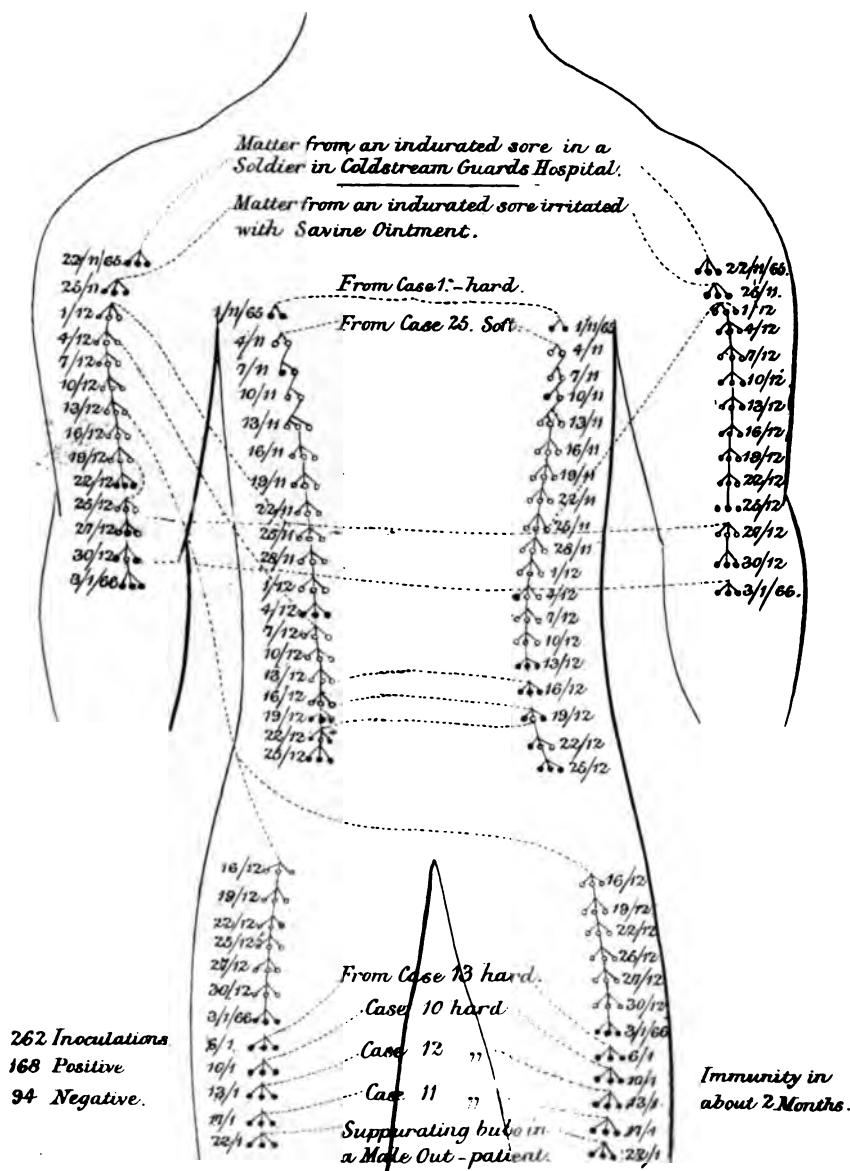 Matter from an indurated sore in a
Soldier in Coldstream Guards Hospital.
Matter from an indurated sore irritated
with Savine Ointment.
From Case 1.-hard.
From Case 25. Soft
22/11/65
25/11
1/12
4/12
7/12
10/12
13/12
16/12
19/12
22/12
25/12
27/12
30/12
3/1/66
1/11/65
4/11
7/11
10/11
13/11
16/11
19/11
22/11
25/11
28/11
1/12
4/12
7/12
10/12
13/12
16/12
19/12
22/12
25/12
1/11/65
4/11
7/11
10/11
13/11
16/11
19/11
22/11
25/11
28/11
1/12
4/12
7/12
10/12
13/12
16/12
19/12
22/12
25/12
22/11/65.
25/11.
1/12
4/12
7/12
10/12
13/12
16/12
19/12
22/12
25/12
27/12
30/12
3/1/66.
16/12
19/12
22/12
25/12
27/12
30/12
3/1/66
6/1
10/1
13/1
17/1
22/1
16/12
19/12
22/12
25/12
27/12
30/12
3/1/66
6/1
10/1
13/1
17/1
22/1
From Case 13 hard.
Case 10 hard
Case 12 „
Case 11 „
Suppurating bubo in
a Male Out-patient.
262 Inoculations
168 Positive
94 Negative.
Immunity in
about 2 Months.